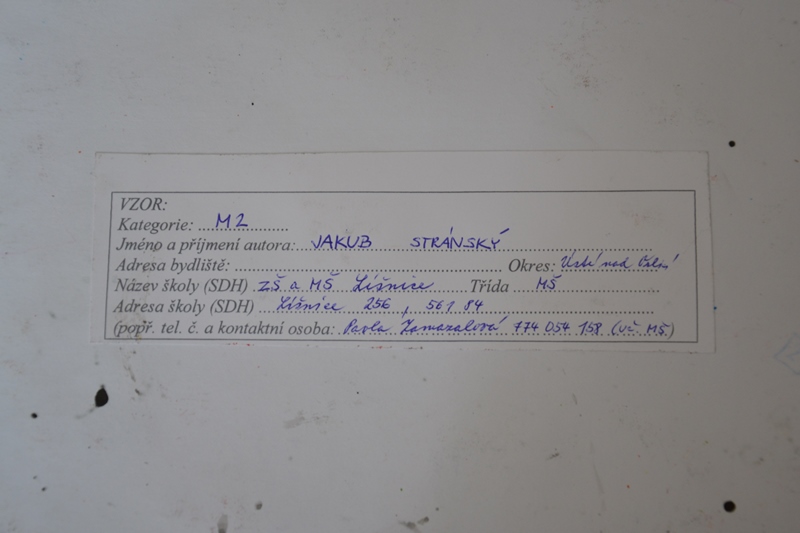 VZOR:
Kategorie: M2
Jméno a příjmení autora: JAKUB STRÁNSKÝ
Adresa bydliště: Okres: Ústí nad Orlicí
Název školy (SDH) ZŠ a MŠ Líšnice Třída MŠ
Adresa školy (SDH) Líšnice 256, 561 84
(popř. tel. č. a kontaktní osoba: Pavla Zamazalová 774 054 158 (uč. MŠ)